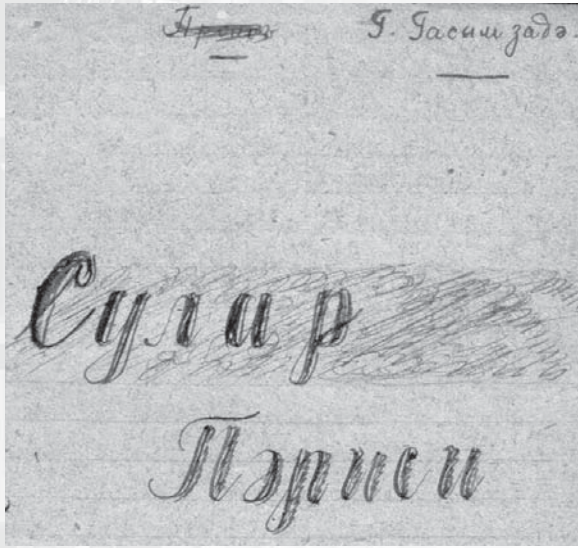 Г. Гасым задә.
Сулар
Пәриси